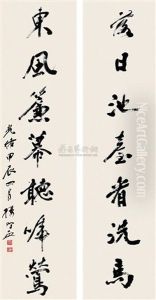 日池臺看洗馬
東風簾幕聽啼鶯
光緒甲辰四月